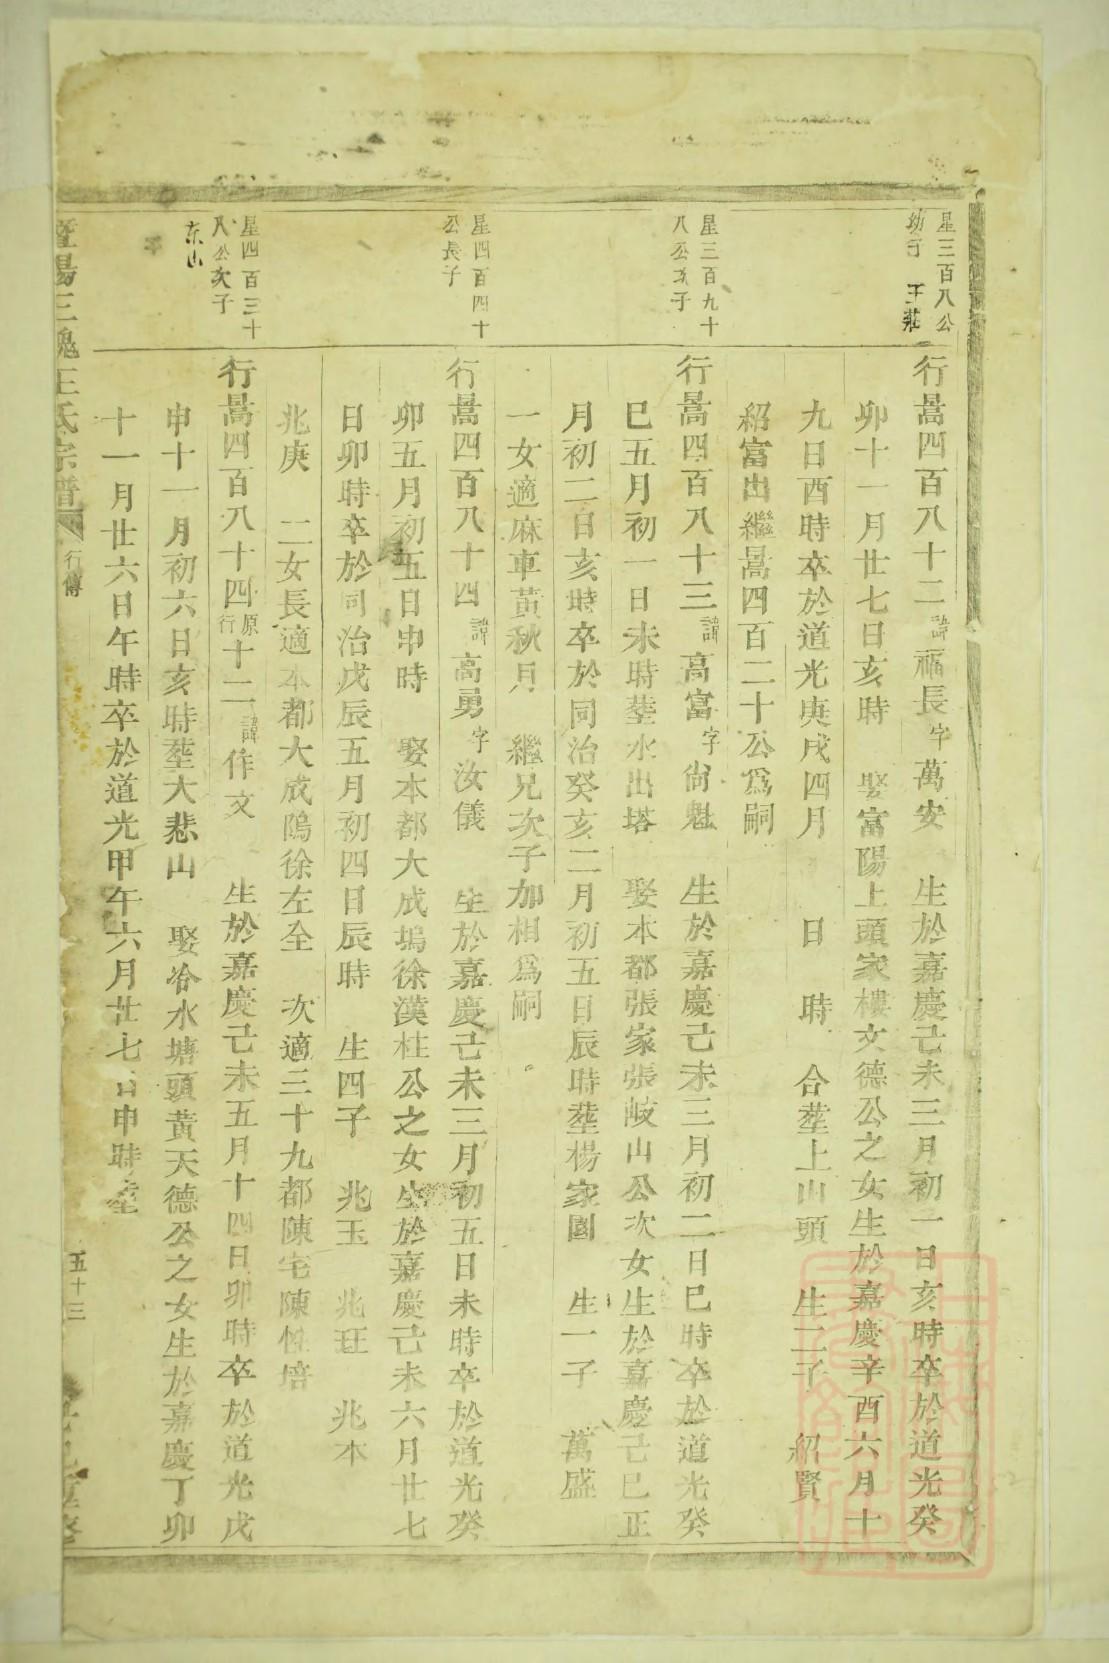 星三百八公
幼子 王莊
行暠四百八十二諱福長字萬安 生於嘉慶己未三月初一日亥時卒於道光癸
卯十一月廿七日亥時 娶富陽上頭家樓文德公之女生於嘉慶辛酉六月十
九日酉時卒於道光庚戌四月 日 時 合塟上山頭 生二子 紹賢
紹富出繼暠四百二十公爲嗣
星三百九十
八公次子
行暠四百八十三諱高富字尙魁 生於嘉慶己未三月初二日巳時卒於道光癸
巳五月初一日未時塟水出塔 娶本都張家張岐山公次女生於嘉慶己巳正
月初二日亥時卒於同治癸亥二月初五日辰時塟楊家園 生一子 萬盛
一女適麻車黃秋月 繼兄次子加相爲嗣
星四百四十
公長子
行暠四百八十四諱高勇字汝儀 生於嘉慶己未三月初五日未時卒於道光癸
卯五月初五日申時 娶本都大成塢徐漢柱公之女生於嘉慶己未六月廿七
日卯時卒於同治戊辰五月初四日辰時 生四子 兆玉 兆珏 兆本
兆庚 二女長適本都大成隖徐左全 次適三十九都陳宅陳性培
星四百三十
八公次子
东山
行暠四百八十四原行十二諱作文 生於嘉慶己未五月十四日卯時卒於道光戊
申十一月初六日亥時塟大悲山 娶冷水塘頭黃天德公之女生於嘉慶丁卯
十一月廿六日午時卒於道光甲午六月廿七日申時塟
暨陽三槐王氏宗譜
行傳
五十三